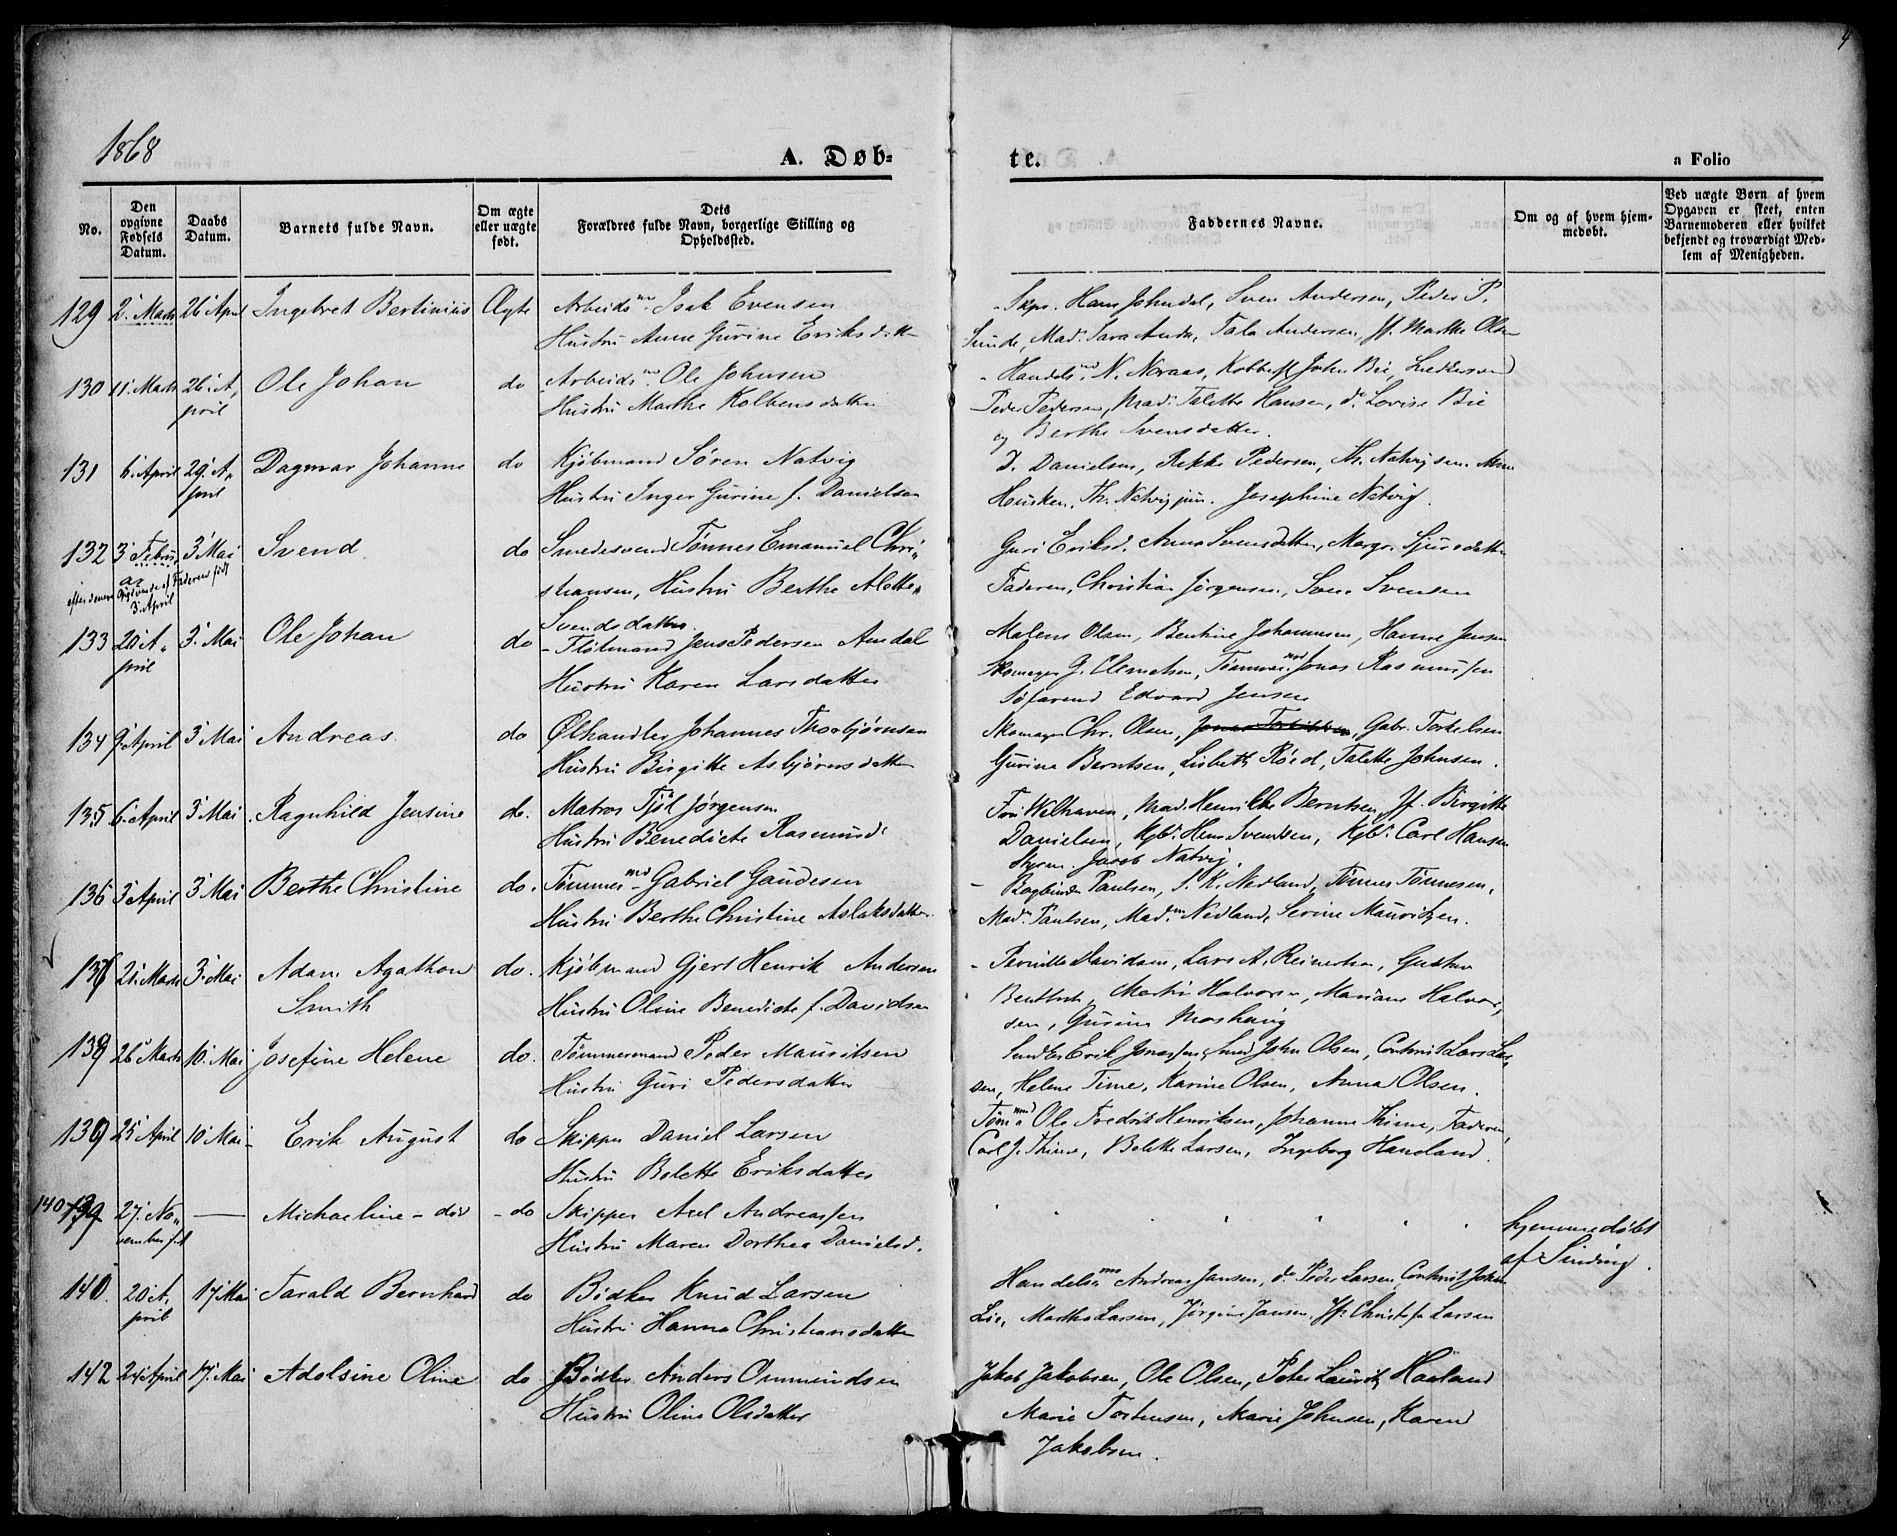 4
1868
A. Døb-
te.
a Folio
No.
Den opgivne Fødsels Datum.
Daabs Datum.
Barnets fulde Navn.
Om ægte eller uægte født.
Dets Forældres fulde Navn, borgerlige Stilling og Opholdssted.
Faddernes Navne.
Om og af hvem hjemmedøbt.
Ved uægte Børn af hvem Opgaven er skeet, enten Barnemoderen eller hvilket bekjendt og troværdigt Medlem af Menigheden.
129 2' Marts 26' April Ingebret Bertinius Ægte Arbeidsm. Isak Evensen
Hustru Anne Gurine Eriksdatt
Skpr. Hans Johndal, Sven Andersen, Peder P.
Sunde, Mad. Sara Andr. Tala Andersen, Jf. Marthe Olsen
130 11. Marts 26. A,
pril Ole Johan do Arbeidsm. Ole Johnsen
Hustru Marthe Kolbensdatter
Handelsmd N. Naraas, John Bie,
Peder Pedersen, Mad. Talette Hansen, do Lovise Bie
og Berthe Svensdatter.
131 6' April 29' A,,
pril Dagmar Johanne do Kjøbmand Søren Natvig
Hustru Inger Gurine f. Danielsen
D. Danielsen, Rikke Pedersen, Th. Natvig sen.
Housken, Th. Natvig jun. Josephine Natvig.
132 3' Febru,,
ar 3' Mai Svend do Smedesvend Tønnes Emanuel Chri,,
stiansen, Hustru Berthe Alette,,
Svendsdatter.
efter denne Opgivende af Faderen født
3. April
Guri Eriksd. Anna Svensdatter, Margr. Sjursdatter
Faderen, Christian Jørgensen, Sven Svensen
133 20' A,,
pril 3. Mai Ole Johan do Fløtmand Jens Pedersen Aredal
Hustru Karen Larsdatter
Malene Olsen, Bentine Johannesen, Hanne Jensen
Skomager G. Clemetsen, Tømmermd Jonas Rasmussen
Søfarend Edvard Jensen
134 9' April 3' Mai Andreas. do Ølhandler Johannes Thorbjørnsen
Hustru Birgitte Asbjørnsdatter
Skomager Chr. Olsen, Gabr. Torkelsen
Gurine Berntsen, Lisbeth Røed, Talette Johnsen.
135 6. April 3' Mai Ragnhild Jensine do. Matros Tjøl Jørgensen
Hustru Benedicte Rasmusd.
Fru Welhaven, Mad. Henrikke Berntsen, Jf. Birgitte
Danielsen, Kjbm. Hans Svendsen, Kjbm. Carl Hansen
Styrm. Jacob Natvig.
136 3' April 3' Mai Berthe Christine do. Tømmermd Gabriel Gaudesen
Hustru Berthe Christine Aslaksdatter.
Bogbinder Paulsen, S. K. Nedland, Tønnes Tønnesen,
Madm Paulsen, Madm Nedland, Serine Mauritzen.
137 21. Marts 3. Mai Adam Agathon
Smith do. Kjøbmand Gjert Henrik Andersen
Hustru Olsine Benedicte f. Davidsen
Pernille Davidsen, Lars A. Reinertsen, Gustav
Berttsen, Martin Halvorsen, Mariane Halvor,
sen, Gurine
138 26' Marts 10. Mai Josefine Helene do. Tømmermand Peder Mauritsen
Hustru Guri Pedersdatter
Erik Jonassen, Smed John Olsen, Lars Lar,
sen, Helene Time, Karine Olsen, Anna Olsen.
139 25' April 10' Mai Erik August do Skipper Daniel Larsen
Hustru Bolette Eriksdatter
Tømmd Ole Fredrik Henriksen, Johanne Thime, Faderen,
Carl J. Thime, Bolette Larsen, Ingeborg Haneland.
140 139 27. No,,
vember f.A — Michaeline - død - do Skipper Axel Andreassen
Hustru Maren Dorthea Danielsd.
hjemmedøbt
af Sinding.
140. 20 A,
pril 17' Mai Tarald Bernhard do Bødker Knud Larsen
Hustru Hanna Christiansdatter
Handelsm Andreas Jansen, do Peder Larsen, John
Lie, Martha Larsen, Jørgine Jansen, Jf. Larsen
142 24' April 17. Mai Adolsine Oline do Bødker Anders Ommundsen
Hustru Oline Olsdatter
Jakob Jakobsen, Ole Olsen, Peter Lauritz Haaland
Marie Torstensen, Marie Johnsen, Karen
Jakobsen.